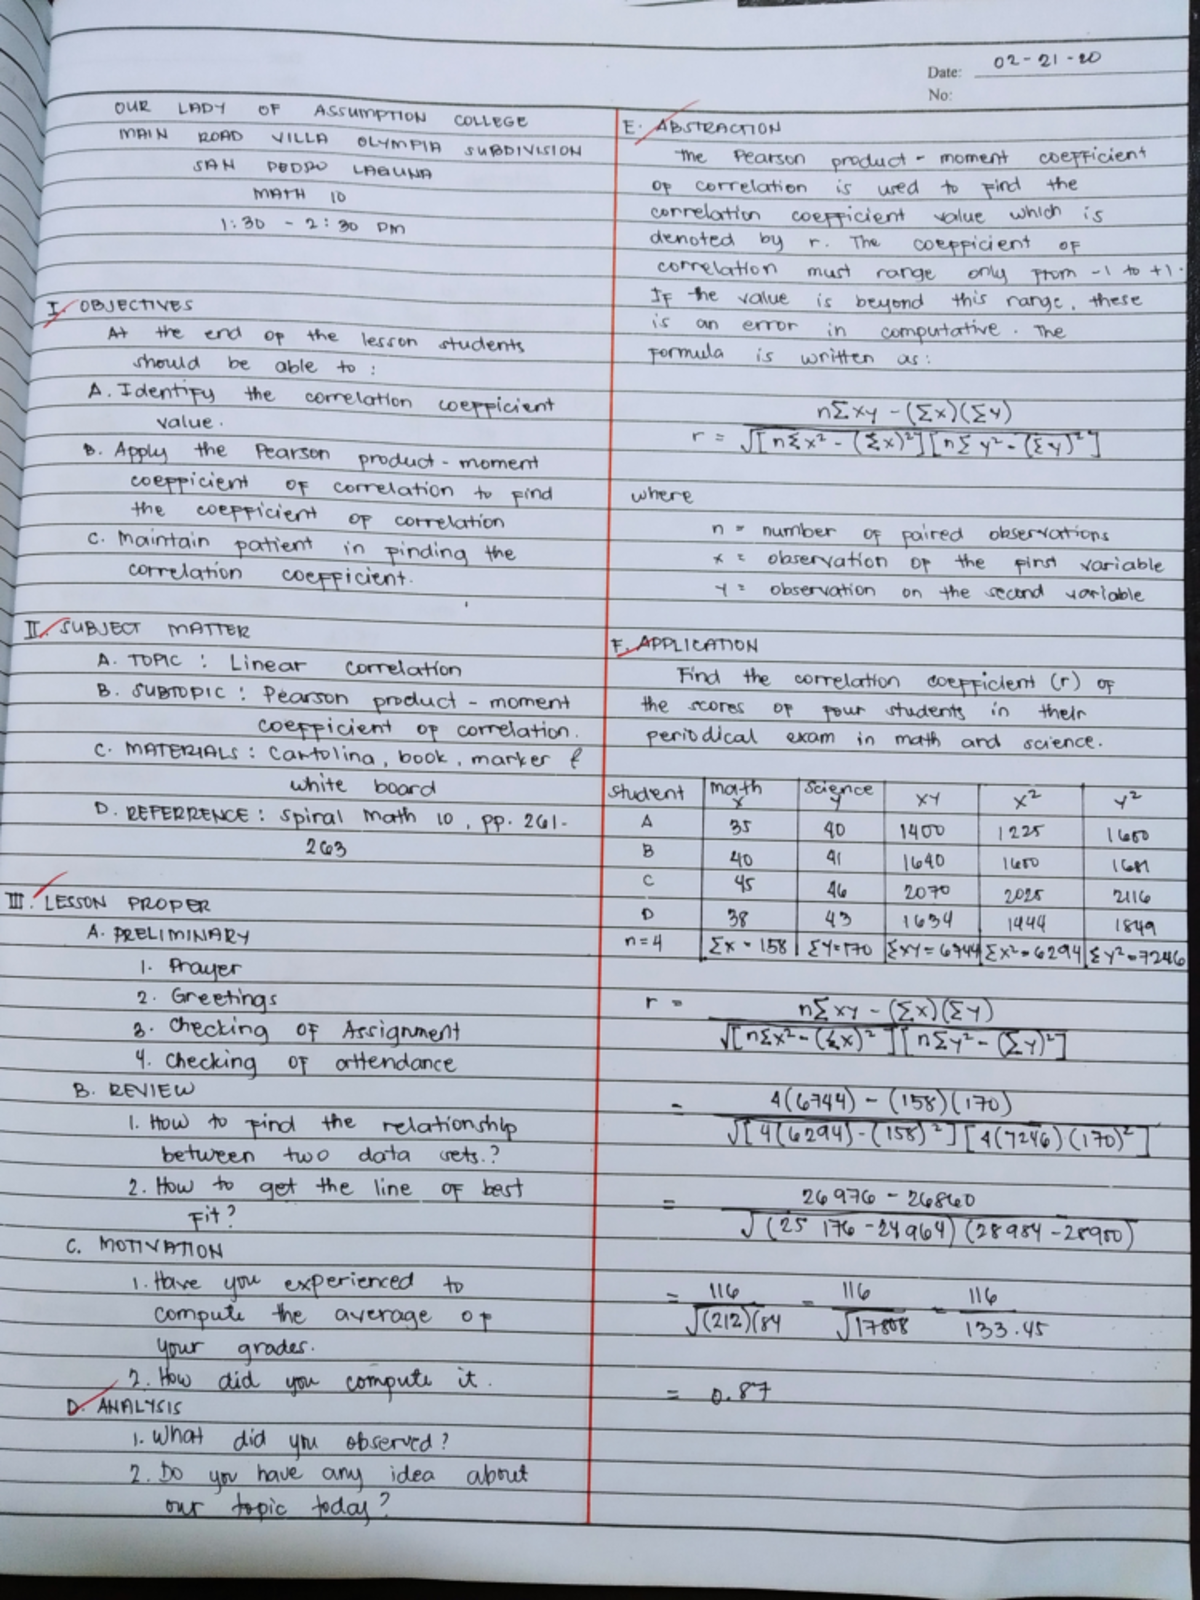 Date: 02-21-20
No:
OUR LADY OF ASSUMPTION COLLEGE
MAIN ROAD VILLA OLYMPIA SUBDIVISION
SAN PEDRO LAGUNA
MATH 10
1:30 - 2:30 pm
I. OBJECTIVES
At the end of the lesson students
should be able to :
A. Identify the correlation coefficient
value.
B. Apply the Pearson product - moment
coefficient of correlation to find
the coefficient of correlation
C. Maintain patient in finding the
correlation coefficient.
II. SUBJECT MATTER
A. TOPIC : Linear correlation
B. SUBTOPIC : Pearson product - moment
coefficient of correlation.
C. MATERIALS : Cartolina, book, marker &
white board
D. REFERRENCE : Spiral Math 10, pp. 261-
263
III. LESSON PROPER
A. PRELIMINARY
1. Prayer
2. Greetings
3. Checking of Assignment
4. Checking of attendance
B. REVIEW
1. How to find the relationship
between two data sets.?
2. How to get the line of best
Fit?
C. MOTIVATION
1. Have you experienced to
compute the average of
your grades.
2. How did you compute it.
D. ANALYSIS
1. What did you observed?
2. Do you have any idea about
our topic today?
E. ABSTRACTION
The Pearson product - moment coefficient
of correlation is used to find the
correlation coefficient value which is
denoted by r. The coefficient of
correlation must range only from -1 to +1.
If the value is beyond this range, these
is an error in computative. The
formula is written as:
nΣxy - (Σx)(Σy)
r = √[nΣx² - (Σx)²][nΣy² - (Σy)²]
where
n = number of paired observations
x = observation of the first variable
y = observation on the second variable
F. APPLICATION
Find the correlation coefficient (r) of
the scores of four students in their
periodical exam in math and science.
Student math x Science y xy x² y²
A 35 40 1400 1225 1600
B 40 41 1640 1600 1681
C 45 46 2070 2025 2116
D 38 43 1634 1444 1849
n=4 Σx = 158 Σy=170 Σxy=6744 Σx²=6294 Σy²=7246
r = nΣxy - (Σx)(Σy)
√[nΣx² - (Σx)²][nΣy² - (Σy)²]
= 4(6744) - (158)(170)
√[4(6294) - (158)²][4(7246)(170)²]
= 26976 - 26860
√(25 176 - 24964)(28984 - 28900)
= 116 = 116 = 116
√(212)(84 √17808 133.45
= 0.87